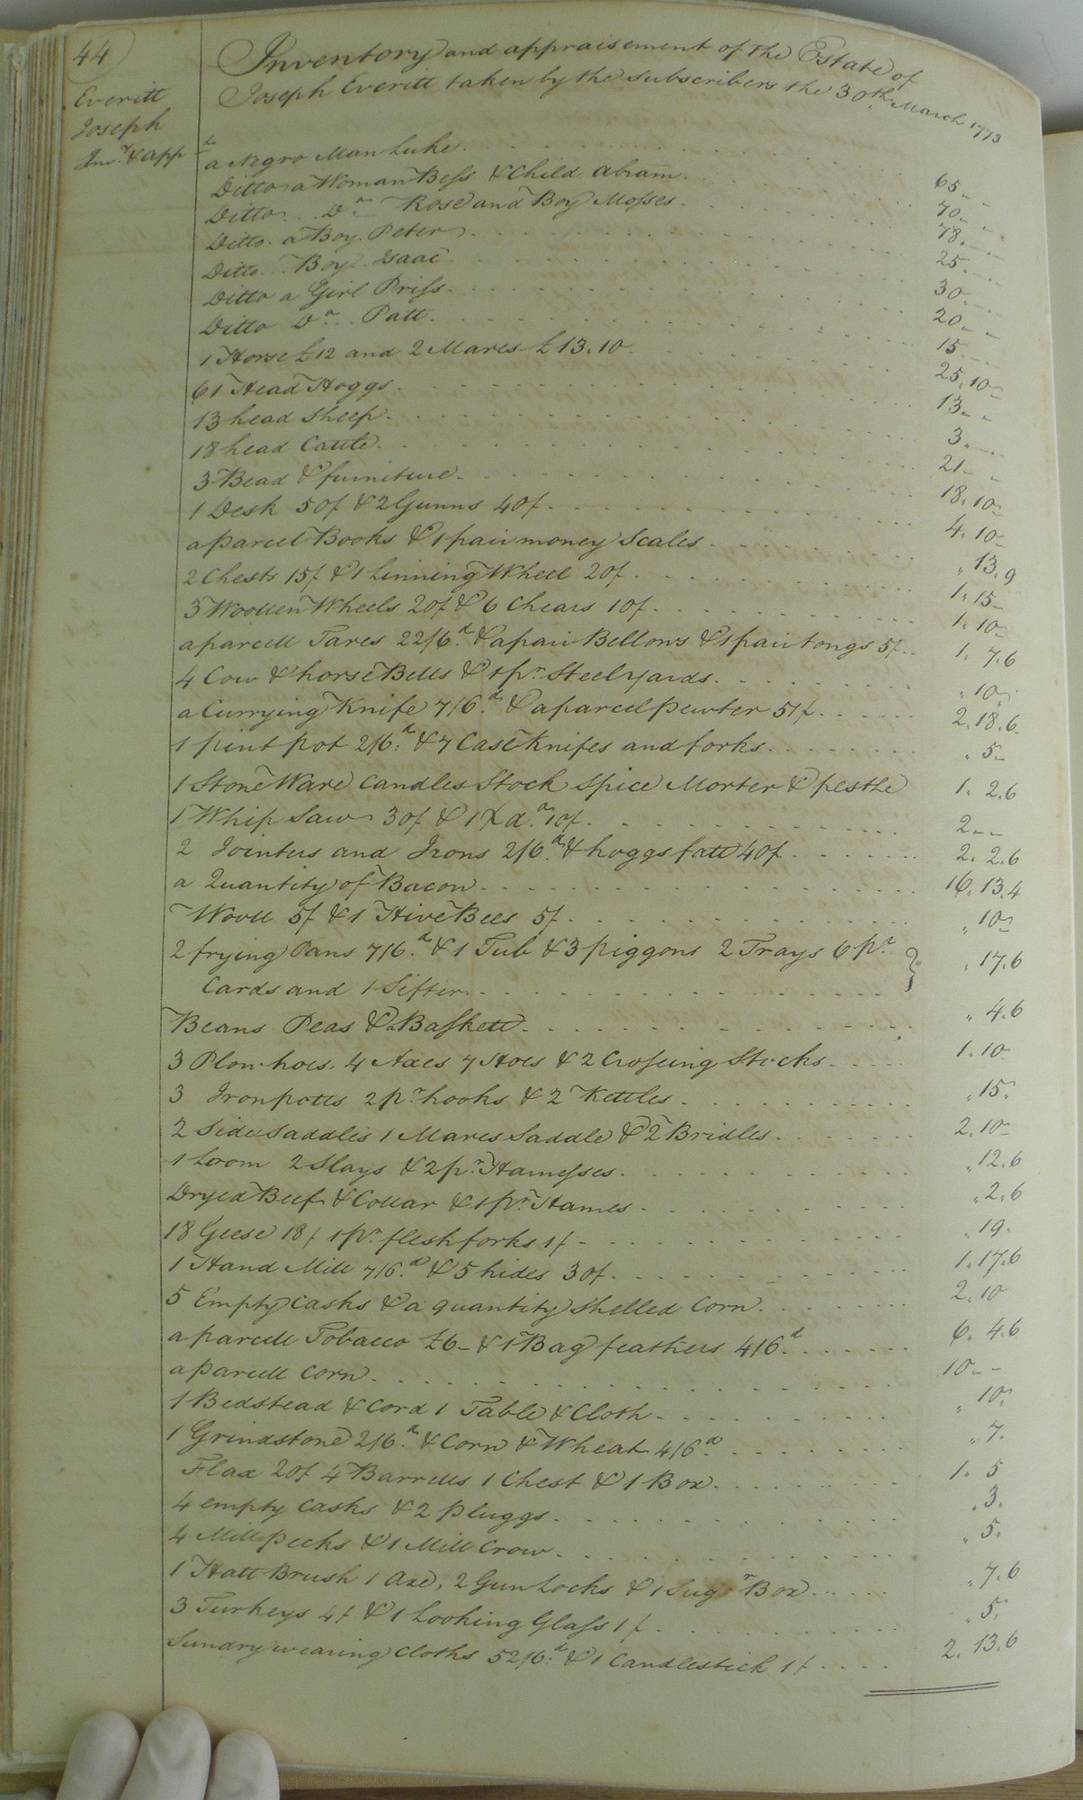 44
Everitt
Joseph
Inv.y & App.
Inventory and appraisement of the Estate of
Joseph Everitt taken by the subscribers the 30th March 1773
a Negro Man Luke 65
Ditto a Woman Bess & Child Abram 70
Ditto Do Rose and Boy Mosses 78
Ditto a Boy Peter 25
Ditto Boy Isaac 30
Ditto a Girl Priss 20
Ditto Do Patt 15
1 Horse £12 and 2 Mares £13.10 25.10
61 Head Hoggs 13
13 head Sheep 3
18 head Cattle 21
3 Bead & furniture 18.10
1 Desk 50/ & 2 Gunns 40/ 4.10
a parcel Books & 1 pair money Scales " 13.9
2 Chests 15/ & 1 Linning Wheel 20/ 1.15
3 Woollen Wheels 20/ & 6 Chears 10/ 1.10
a parcell Tares 22/6d & a pair Bellows & 1 pair tongs 5/ 1.7.6
4 Cow & horse Bells & 1 pr Steelyards " 10
a Currying Knife 7/6d & a parcel pewter 51/ 2.18.6
1 pint pot 2/6d & 7 Case Knifes and forks " 5
1 Stone Ware Candles Stock Spice Morter & pestle 1.2.6
1 Whip Saw 30/ & 1 X do 10/ 2
2 Jointers and Irons 2/6d & hoggs fatt 40/ 2.2.6
a Quantity of Bacon 16.13.4
Wooll 5/ & 1 Hive Bees 5/ " 10
2 frying Pans 7/6d & 1 Tub & 3 piggons 2 Trays 6 pr
Cards and 1 Sifter " 17.6
Beans Peas & Baskett " 4.6
3 Plow hoes 4 Axes 7 Hoes & 2 Crossing Stocks 1.10
3 Iron potts 2 pr hooks & 2 Kettles " 15
2 Side Saddles 1 Mares Saddle & 2 Bridles 2.10
1 Loom 2 Slays & 2 pr Harnesses " 12.6
Dryed Beef & Collar & 1 pr Hames " 2.6
18 Geese 18/ 1 pr flesh forks 1/ " 19
1 Hand Mill 7/6d & 5 hides 30/ 1.17.6
5 Empty Casks & a quantity Shelled Corn 2.10
a parcell Tobacco £6 & 1 Bag feathers 4/6d 6.4.6
a parcell Corn 10
1 Bedstead & Cord 1 Table & Cloth " 10
1 Grindstone 2/6d & Corn & Wheat 4/6d " 7
Flax 20/ 4 Barrells 1 Chest & 1 Box 1.5
4 empty Casks & 2 pluggs " 3
4 Mill pecks & 1 Mill Crow " 5
1 Hatt Brush 1 Axe, 2 Gun Locks & 1 Sugr Box " 7.6
3 Turkeys 4/ & 1 Looking Glass 1/ " 5
Sundry wearing Cloths 52/6d & 1 Candlestick 1/ 2.13.6